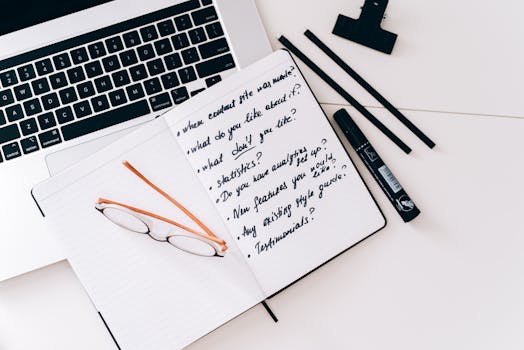 • where content site was made?
• what do you like about it?
• what don't you like?
• statistics?
• Do you have analytics set up?
• New features you would like?
• Any existing style guide?
• Testimonials?